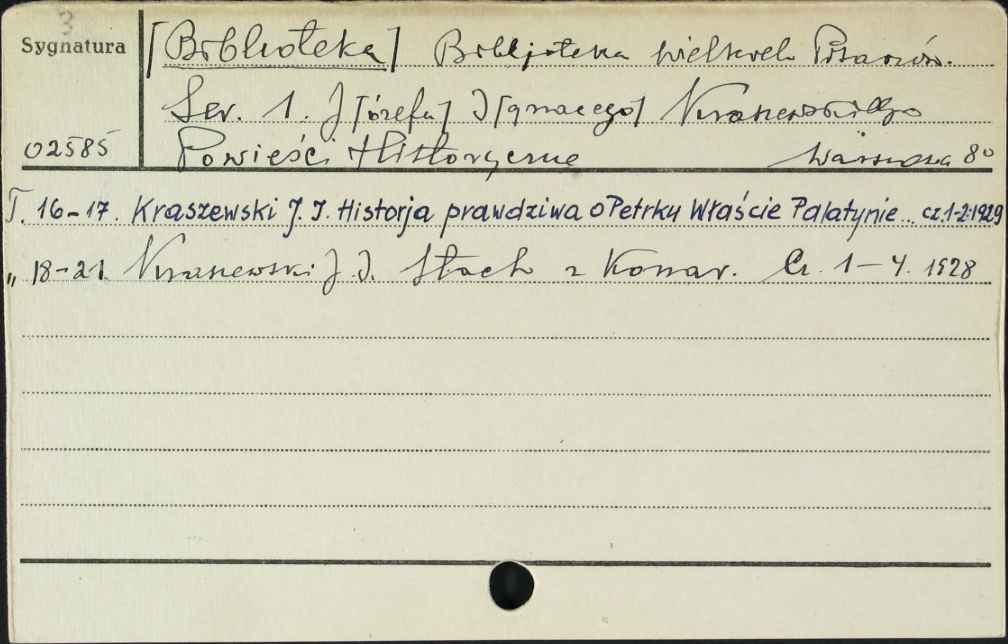 3
Sygnatura
[Biblioteka] Bibljoteka wielkich Pisarzów.
Ser. 1. J[ózefa] I[gnacego] Kraszewskiego
02585 Powieści Historyczne Warszawa 8°
T. 16-17. Kraszewski J. I. Historja prawdziwa o Petrku Właście Palatynie... cz. 1-2. 1929
„ 18-21 Kraszewski J. I. Stach z Konar. Cz. 1-4. 1928